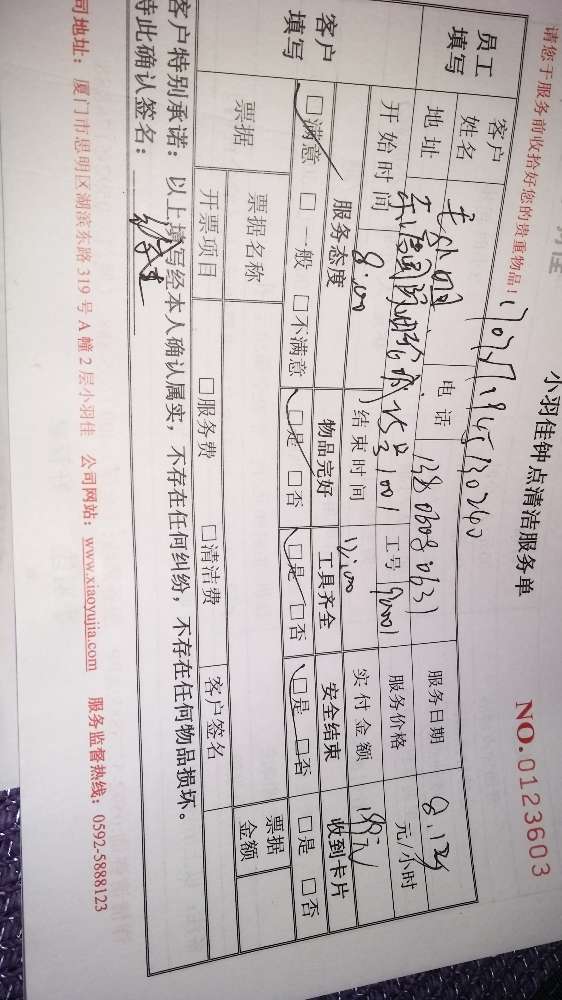 小羽佳钟点清洁服务单
NO.0123603
请您于服务前收拾好您的贵重物品！
员工填写 客户姓名 电话 服务日期
地址 工号 90001 服务价格 元/小时
开始时间 8:00 结束时间 12:00 实付金额
客户填写 服务态度 物品完好 工具齐全 安全结束 收到卡片
□满意 □一般 □不满意 □是 □否 □是 □否 □是 □否 □是 □否
票据 票据名称 票据金额
开票项目 □服务费 □清洁费 客户签名
客户特别承诺：以上填写经本人确认属实，不存在任何纠纷，不存在任何物品损坏。
特此确认签名：
司地址：厦门市思明区湖滨东路319号A幢2层小羽佳 公司网站：www.xiaoyujia.com 服务监督热线：0592-5888123